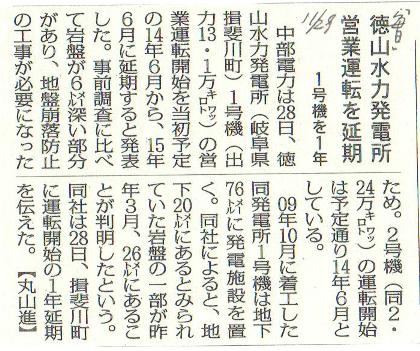 11/29
徳山水力発電所
営業運転を延期
1号機を1年
中部電力は28日、徳
山水力発電所（岐阜県
揖斐川町）1号機（出
力13・1万㌔㍗）の営
業運転開始を当初予定
の14年6月から、15年
6月に延期すると発表
した。事前調査に比べ
て岩盤が6㍍深い部分
があり、地盤崩落防止
の工事が必要になった
ため。2号機（同2・
24万㌔㍗）の運転開始
は予定通り14年6月と
している。
09年10月に着工した
同発電所1号機は地下
76㍍に発電施設を置
く。同社によると、地
下20㍍にあるとみられ
ていた岩盤の一部が昨
年3月、26㍍にあるこ
とが判明したという。
同社は28日、揖斐川町
に運転開始の1年延期
を伝えた。【丸山進】